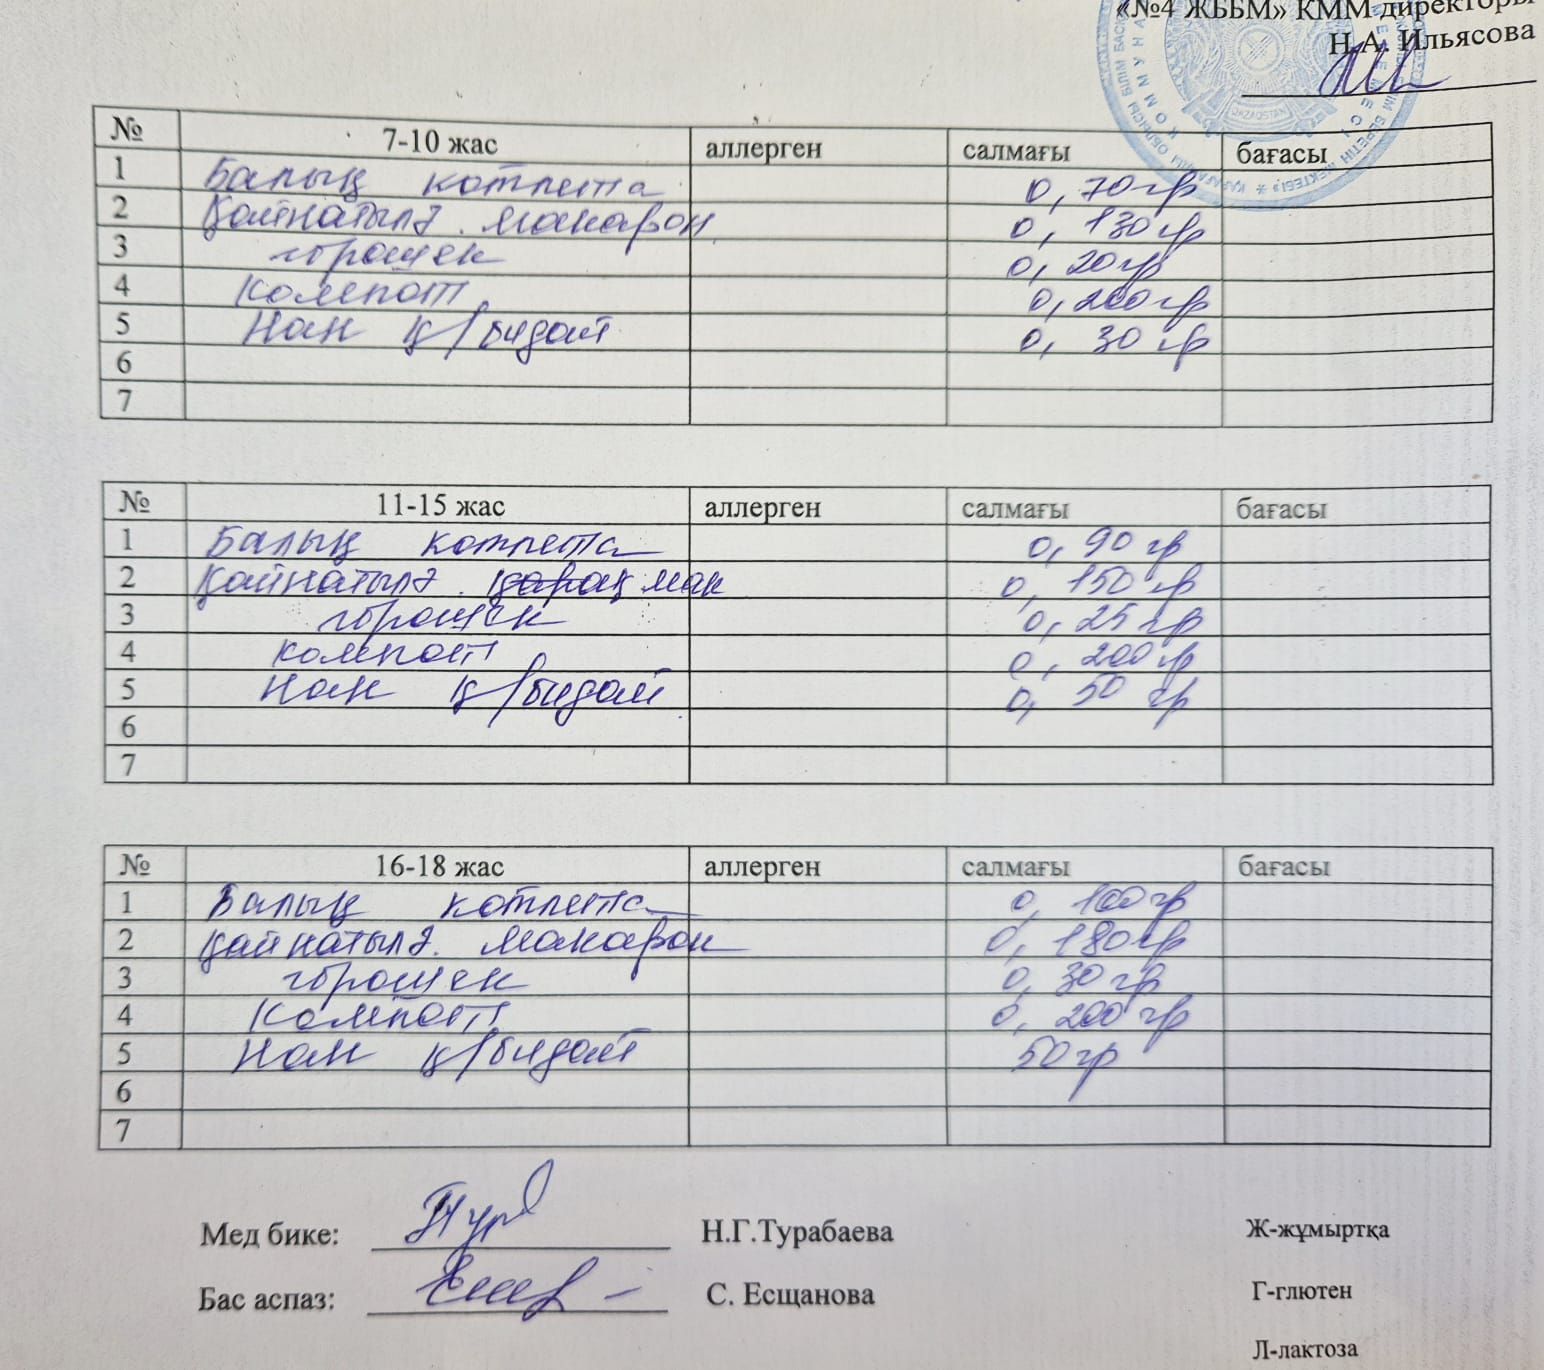 «№4 ЖББМ» КММ директоры
Н.А. Ильясова
QAZAQSTAN
№ 7-10 жас аллерген салмағы бағасы
1 Балық котлета 0, 70 гр
2 Қайнатылғ. макарон 0, 130 гр
3 горошек 0, 20 гр
4 Компот 0, 200 гр
5 Нан қ/бидай 0, 30 гр
6
7
№ 11-15 жас аллерген салмағы бағасы
1 Балық котлета 0, 90 гр
2 Қайнатылғ. мак 0, 150 гр
3 горошек 0, 25 гр
4 компот 0, 200 гр
5 Нан қ/бидай 0, 50 гр
6
7
№ 16-18 жас аллерген салмағы бағасы
1 Балық котлета 0, 100 гр
2 Қайнатылғ. макарон 0, 180 гр
3 горошек 0, 30 гр
4 Компот 0, 200 гр
5 Нан қ/бидай 50 гр
6
7
Мед бике: Н.Г.Турабаева Ж-жұмыртқа
Бас аспаз: С. Есщанова Г-глютен
Л-лактоза